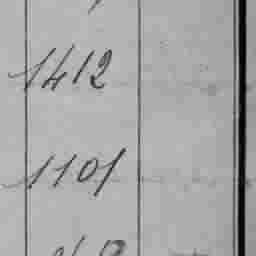 1412
1101